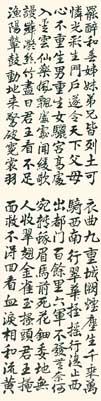 罷醉和春姊妹弟兄皆列土可
憐光彩生門戶遂令天下父母
心不重生男重生女驪宮高處
入青雲仙樂風飄處處聞緩歌
謾舞凝絲竹盡日君王看不足
漁陽鼙鼓動地來驚破霓裳羽
衣曲九重城闕煙塵生千乘萬
騎西南行翠華搖搖行復止西
出都門百餘里六軍不發無奈何
宛轉蛾眉馬前死花鈿委地無
人收翠翹金雀玉搔頭君王掩
面救不得回看血淚相和流黃